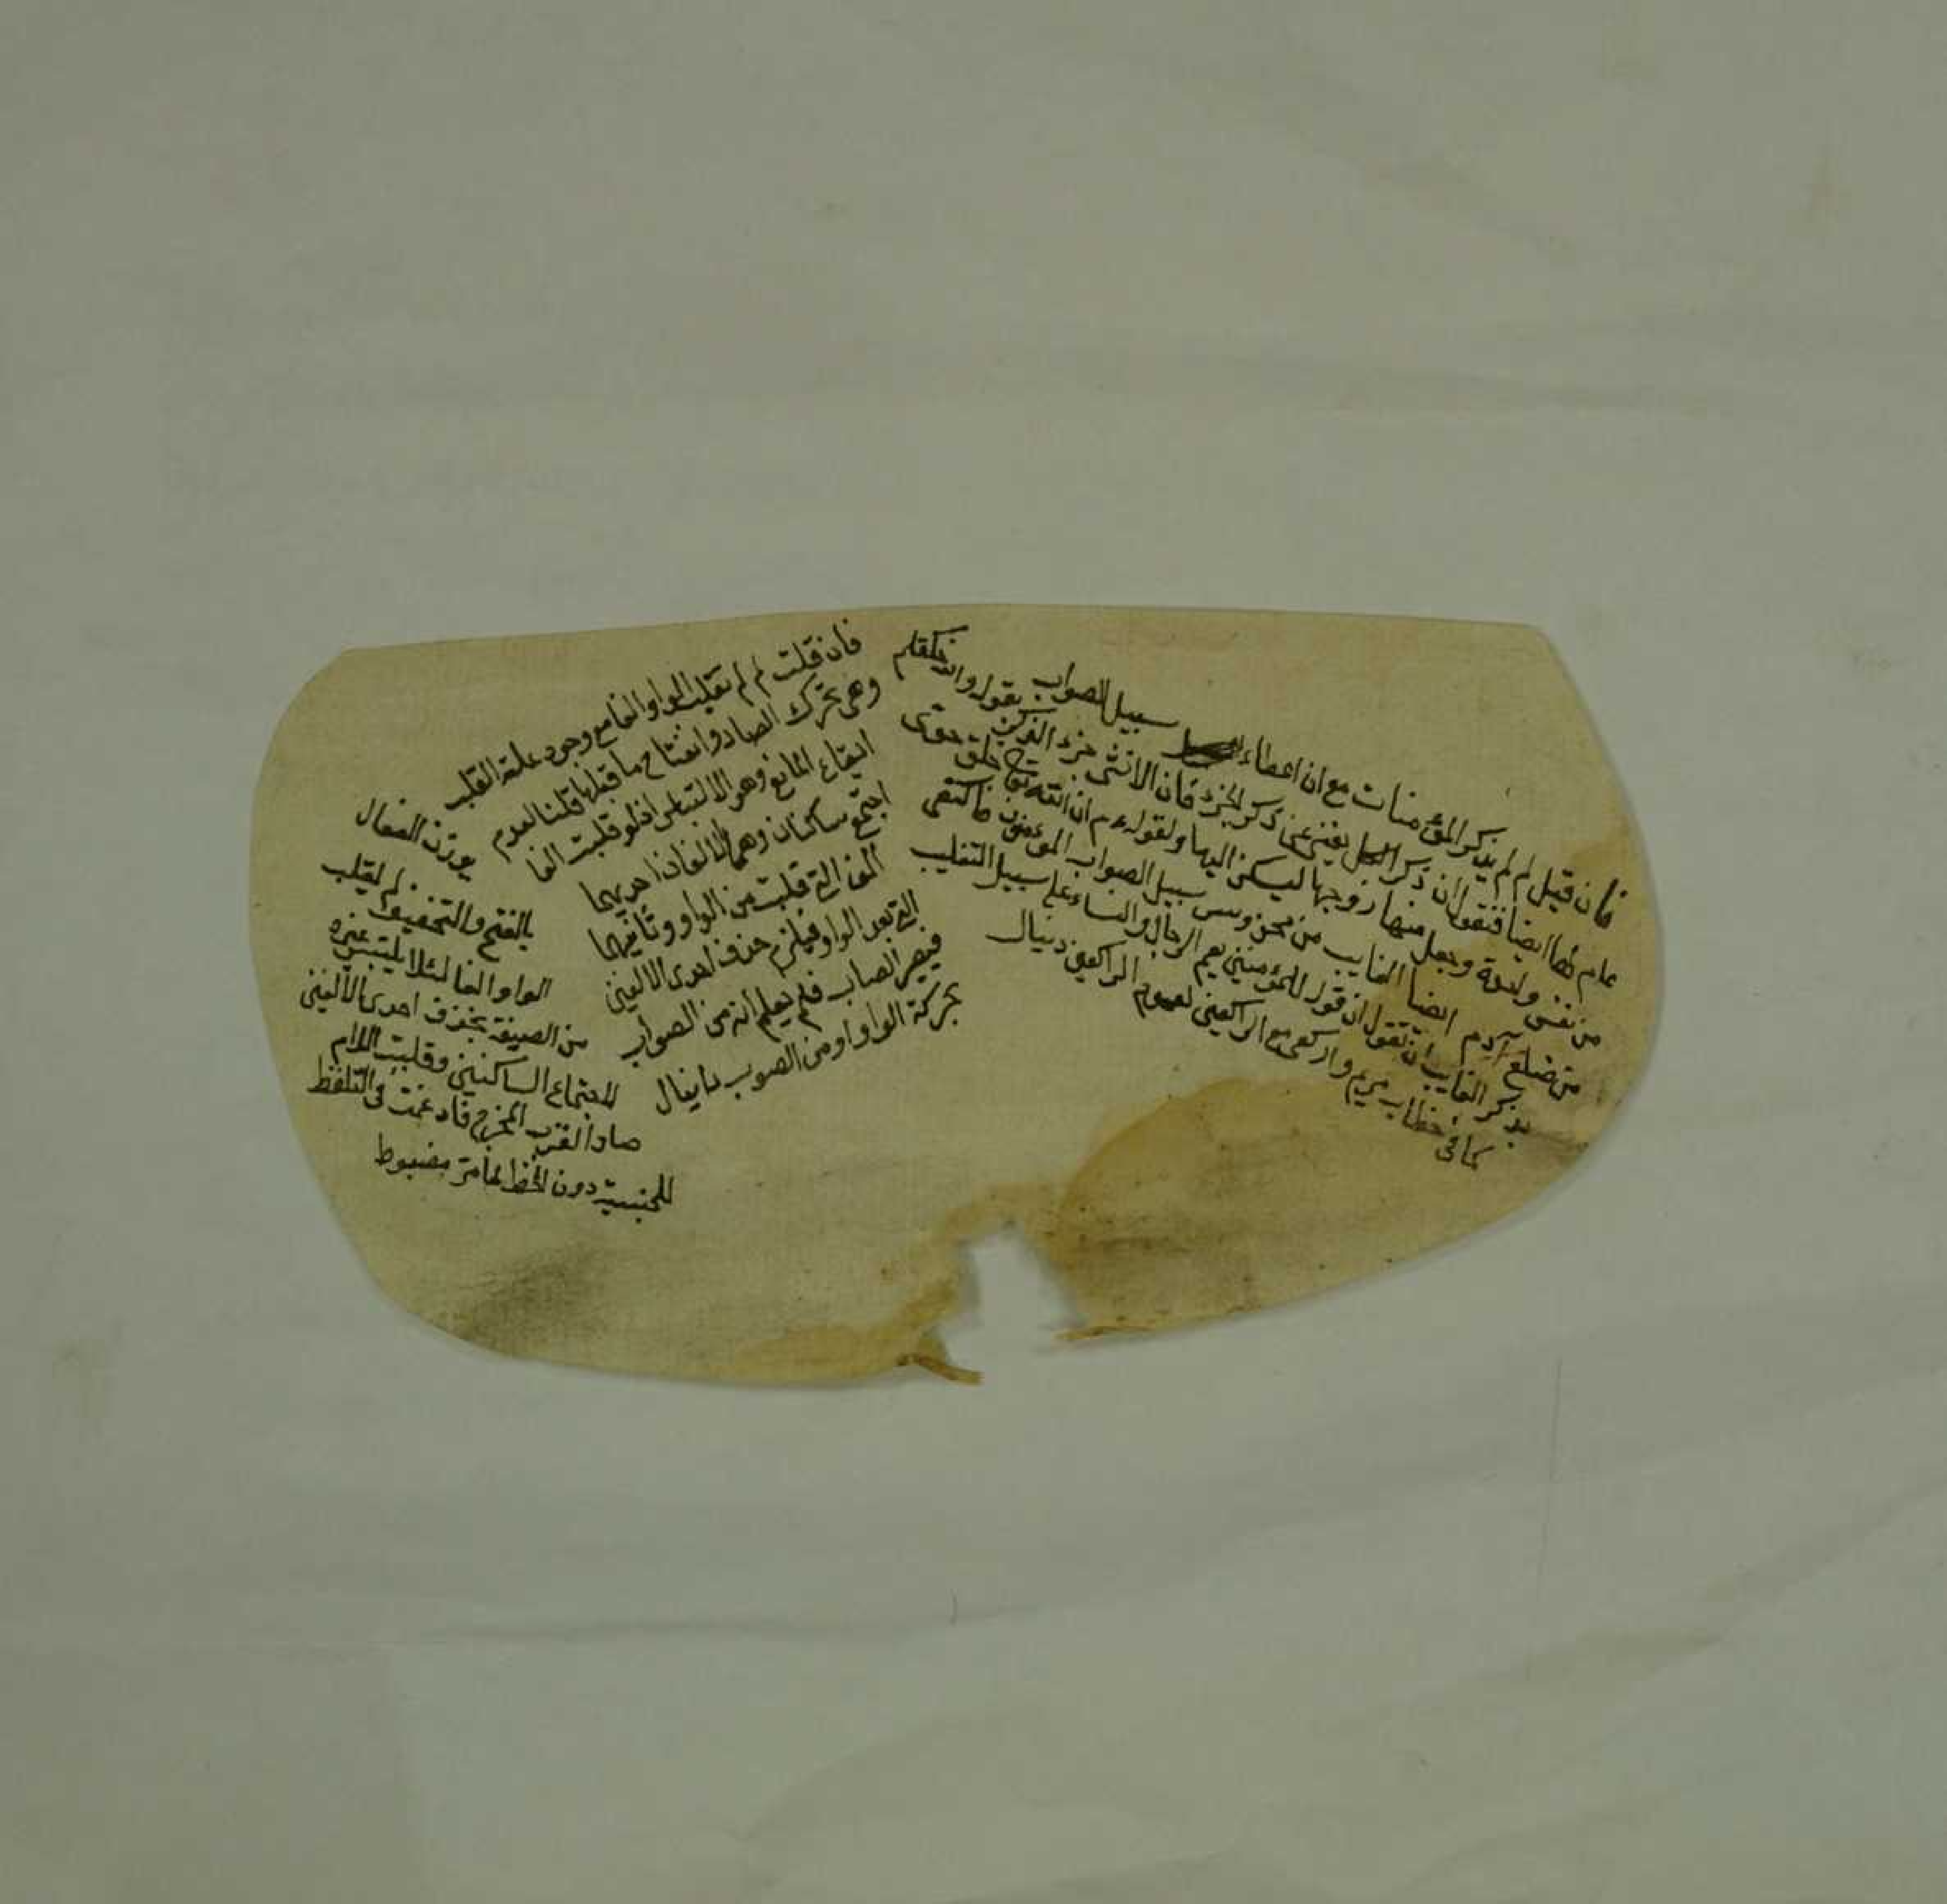 فان قيل لم لم يذكر المؤمنات مع ان اعطاء سبيل الصواب
عام لها ايضا فنقول ان ذكر الكل يغني عن ذكر الجزء فان الانثى جزء الذكر بقوله والله خلقكم
من نفس واحدة وجعل منها زوجها ليسكن اليها ولقوله عم ان الله تع خلق حوى
من ضلع آدم ايضا الغايب من نحن وسن سبيل الصواب المؤمنون فاكتفى
بذكر الغايب او نقول ان قول للمؤمنين يعم الرجال والنساء على سبيل التغليب
كما في خطاب مريم واركعي مع الراكعين لعموم الراكعين دنيال
فان قلت لم لم تقلب الواو الفا مع وجود علة القلب
وهي تحرك الصاد وانفتاح ما قبلها قلنا لعدم
انتفاء المانع وهو الالتباس اذ لو قلبت الفا
اجتمع ساكنان وهما الالفان احديهما
الف التي قلبت من الواو وثانيهما
التي بعد الواو فيلزم حذف احدى الالفين
فيصر الصاب فلم يعلم انه من الصواب
بحركة الواو او من الصوب دانيال
بوزن الفعال
بالفتح والتخفيف لم تقلب
الواو الفا لئلا يلتبس غيره
من الصيغة بحذف احدى الالفين
لاجتماع الساكنين وقلبت اللام
صادا لقرب المخرج فادغمت في التلفظ
للجنسية دون الخط لما مر مضبوط